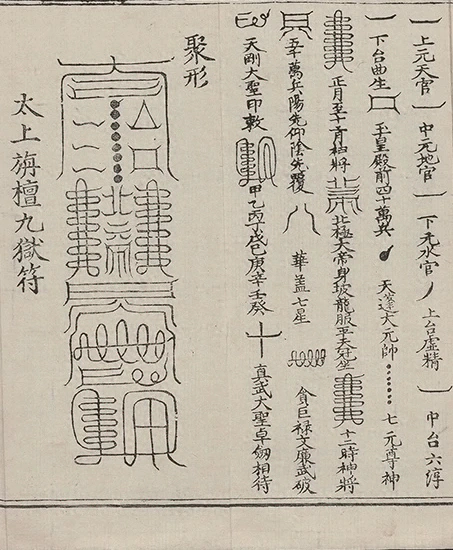 上元天官 中元地官 下元水官 上台虚精 中台六淳
下台曲生 玉皇殿前四十萬兵 天蓬大元帥 七元尊神
正月至十 將 北極大帝身披龍服平天冠坐 十二時神將
五十萬兵陽先仰陰先覆 華蓋七星 貪巨禄文廉武破
天剛大聖印敕 甲乙丙丁戊己庚辛壬癸 真武大聖卓劒相待
聚形
太上旃檀九獄符